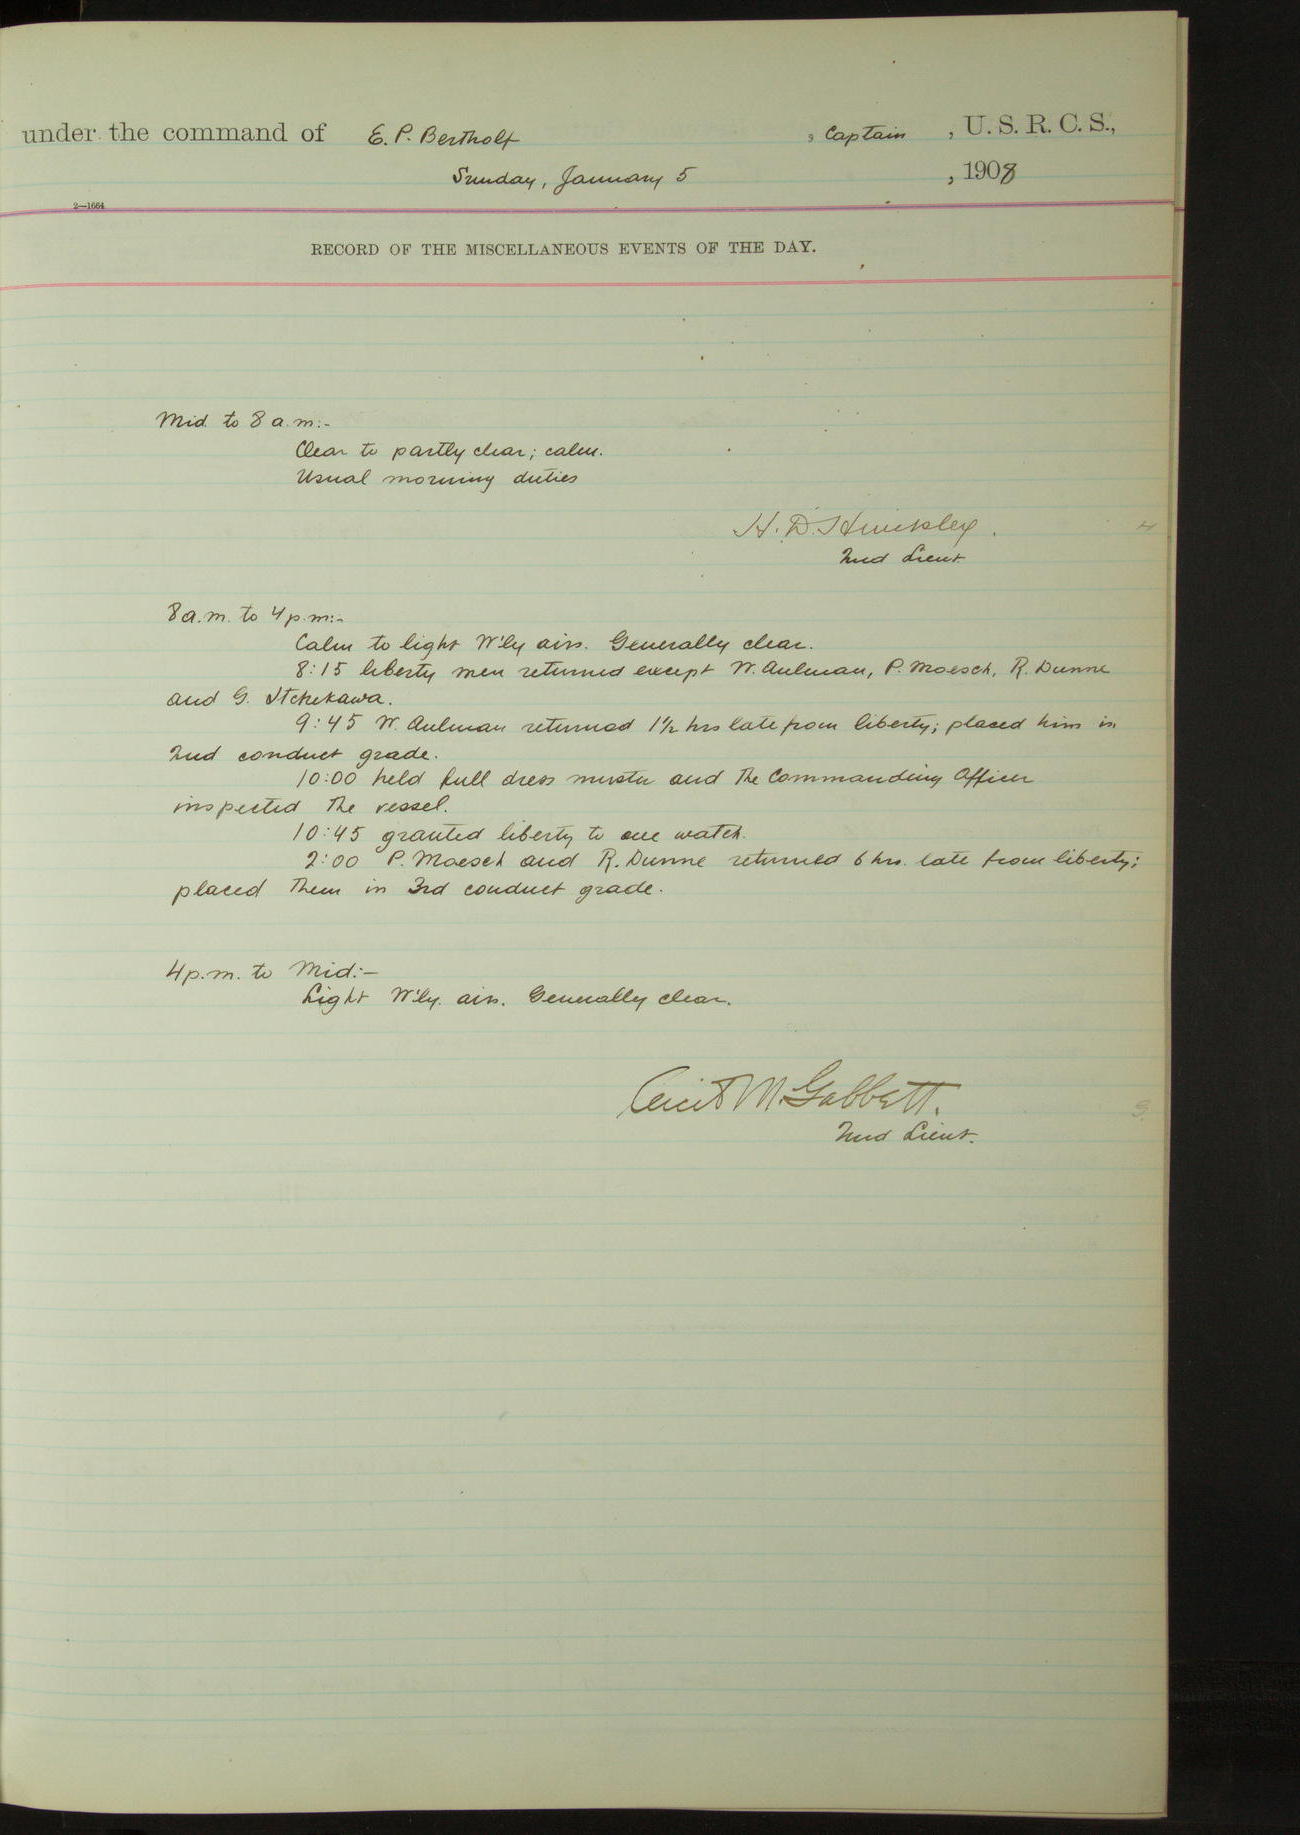 under the command of E. P. Bertholf, Captain, U. S. R. C. S.,
Sunday, January 5, 1908
2—1664
RECORD OF THE MISCELLANEOUS EVENTS OF THE DAY.
Mid. to 8 a.m:-
Clear to partly clear; calm.
Usual morning duties
H. D. Hinckley.
2nd Lieut.
8 a.m. to 4 p.m:-
Calm to light W'ly airs. Generally clear.
8:15 liberty men returned except W. Aulman, P. Moesch, R. Dunne
and G. Itchekawa.
9:45 W. Aulman returned 1½ hrs late from liberty; placed him in
2nd conduct grade.
10:00 held full dress muster and the Commanding Officer
inspected the vessel.
10:45 granted liberty to one watch.
2:00 P. Moesch and R. Dunne returned 6 hrs. late from liberty;
placed them in 3rd conduct grade.
4 p.m. to Mid:-
Light W'ly. airs. Generally clear.
Cecil M. Gabbett.
2nd Lieut.